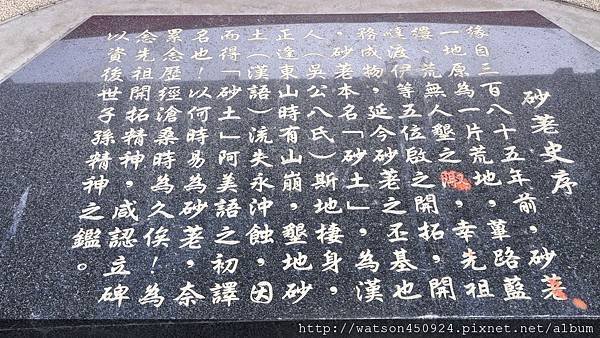 砂荖史序
緣自三百八十五年前，砂荖
一地原為一片荒地，蓽路藍
縷、荒無人墾之際，幸先祖
達渡伊等五位啟之開拓，開
務成物，延今砂荖之丕基也
。砂荖本名「砂土」，為漢
人（吳公八氏）斯地棲身，
正逢東山時有山崩，墾地砂
土（漢語）流失永沖蝕，因
而得「砂土」阿美語之初譯
名也！以何時易為砂荖，奈
累念歷經滄桑時為久俟！為
念先祖開拓精神，咸認立碑
以資後世子孫精神之鑑。
http://watson450924.pixnet.net/album